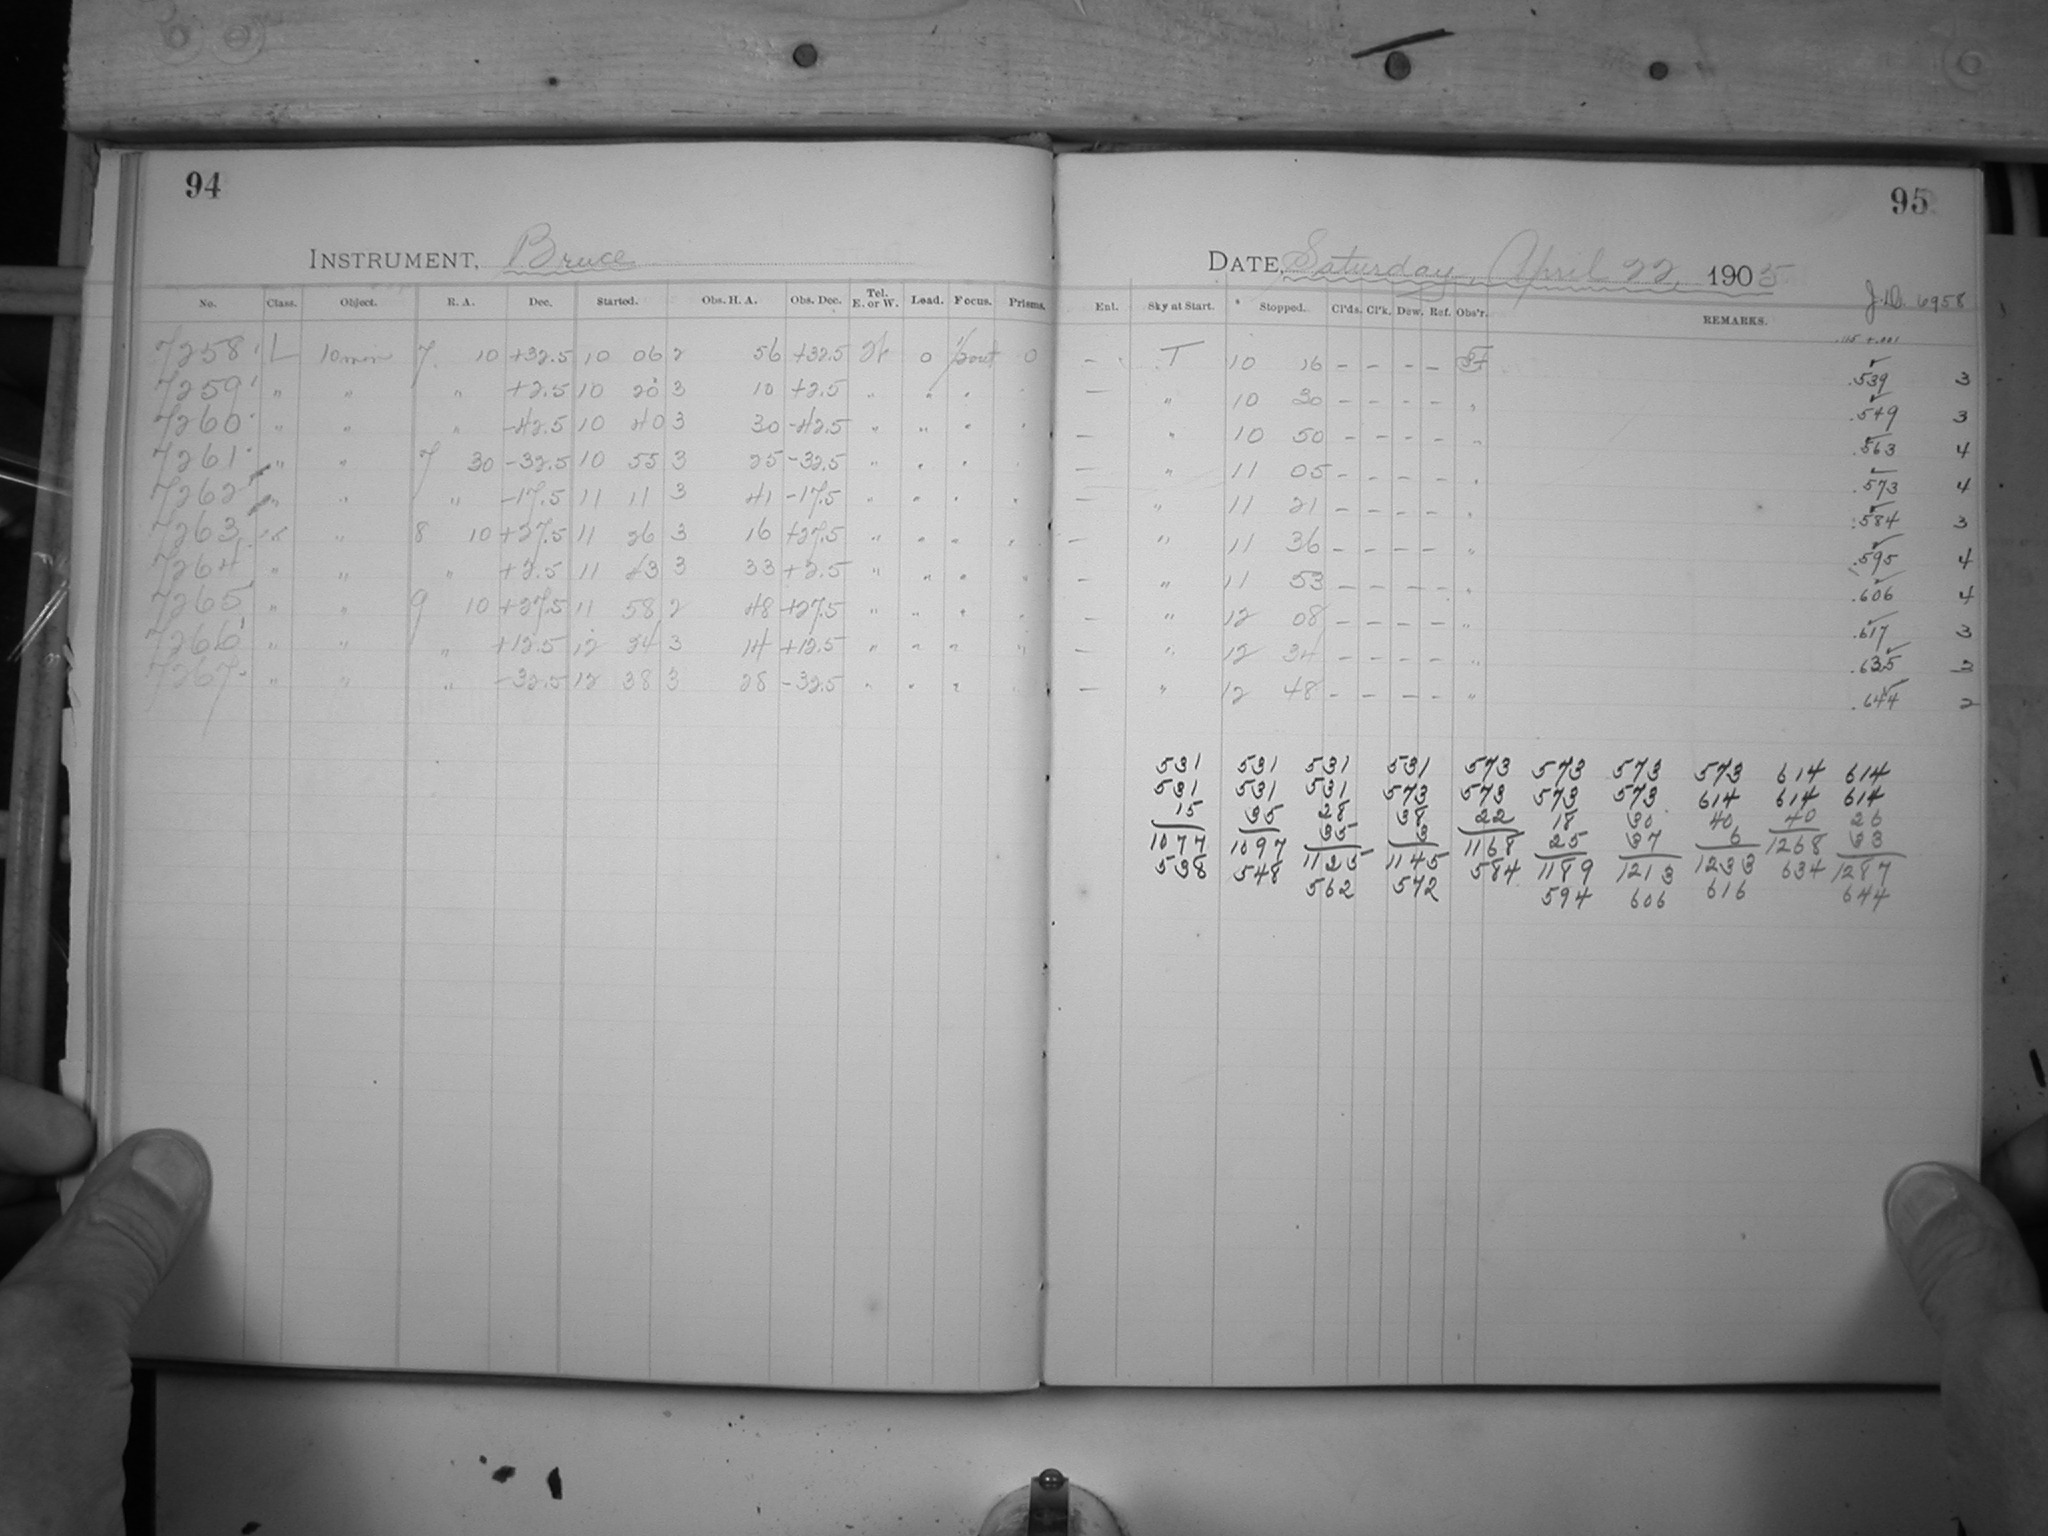 94
INSTRUMENT, Bruce
No. Class. Object. R. A. Dec. Started. Obs. H. A. Obs. Dec. Tel. E. or W. Lead. Focus. Prisms.
7258 L 10 min 7 10 +32.5 10 06 2 56 +32.5 W 0 0
7259 " " " +2.5 10 20 3 10 +2.5 " " "
7260 " " " -42.5 10 40 3 30 -42.5 " " " "
7261 " " 7 30 -32.5 10 55 3 25 -32.5 " " " "
7262 " " " -17.5 11 11 3 41 -17.5 " " " "
7263 " " 8 10 +27.5 11 26 3 16 +27.5 " " " "
7264 " " " +2.5 11 43 3 33 +2.5 " " " "
7265 " " 9 10 +27.5 11 58 2 48 +27.5 " " " "
7266 " " " +12.5 12 24 3 14 +12.5 " " " "
7267 " " " -32.5 12 38 3 28 -32.5 " " " "
95
DATE, Saturday, April 22, 1905
J.D. 6958
Ent. Sky at Start. Stopped. Cl'ds. Cl'k. Dew. Ref. Obs'r. REMARKS.
- T 10 16 - - - - .539 3
- " 10 30 - - - - " .549 3
- " 10 50 - - - - " .563 4
- " 11 05 - - - - " .573 4
- " 11 21 - - - - " .584 3
- " 11 36 - - - - " .595 4
- " 11 53 - - - - " .606 4
- " 12 08 - - - - " .617 3
- " 12 34 - - - - " .635 3
- " 12 48 - - - - " .644 2
531 531 531 531 573 573 573 573 614 614
531 531 531 573 573 573 573 614 614 614
15 35 28 38 22 18 30 40 40 26
35 3 25 37 6 33
1077 1097 1125 1145 1168 1189 1213 1233 1268 1287
538 548 562 572 584 594 606 616 634 644